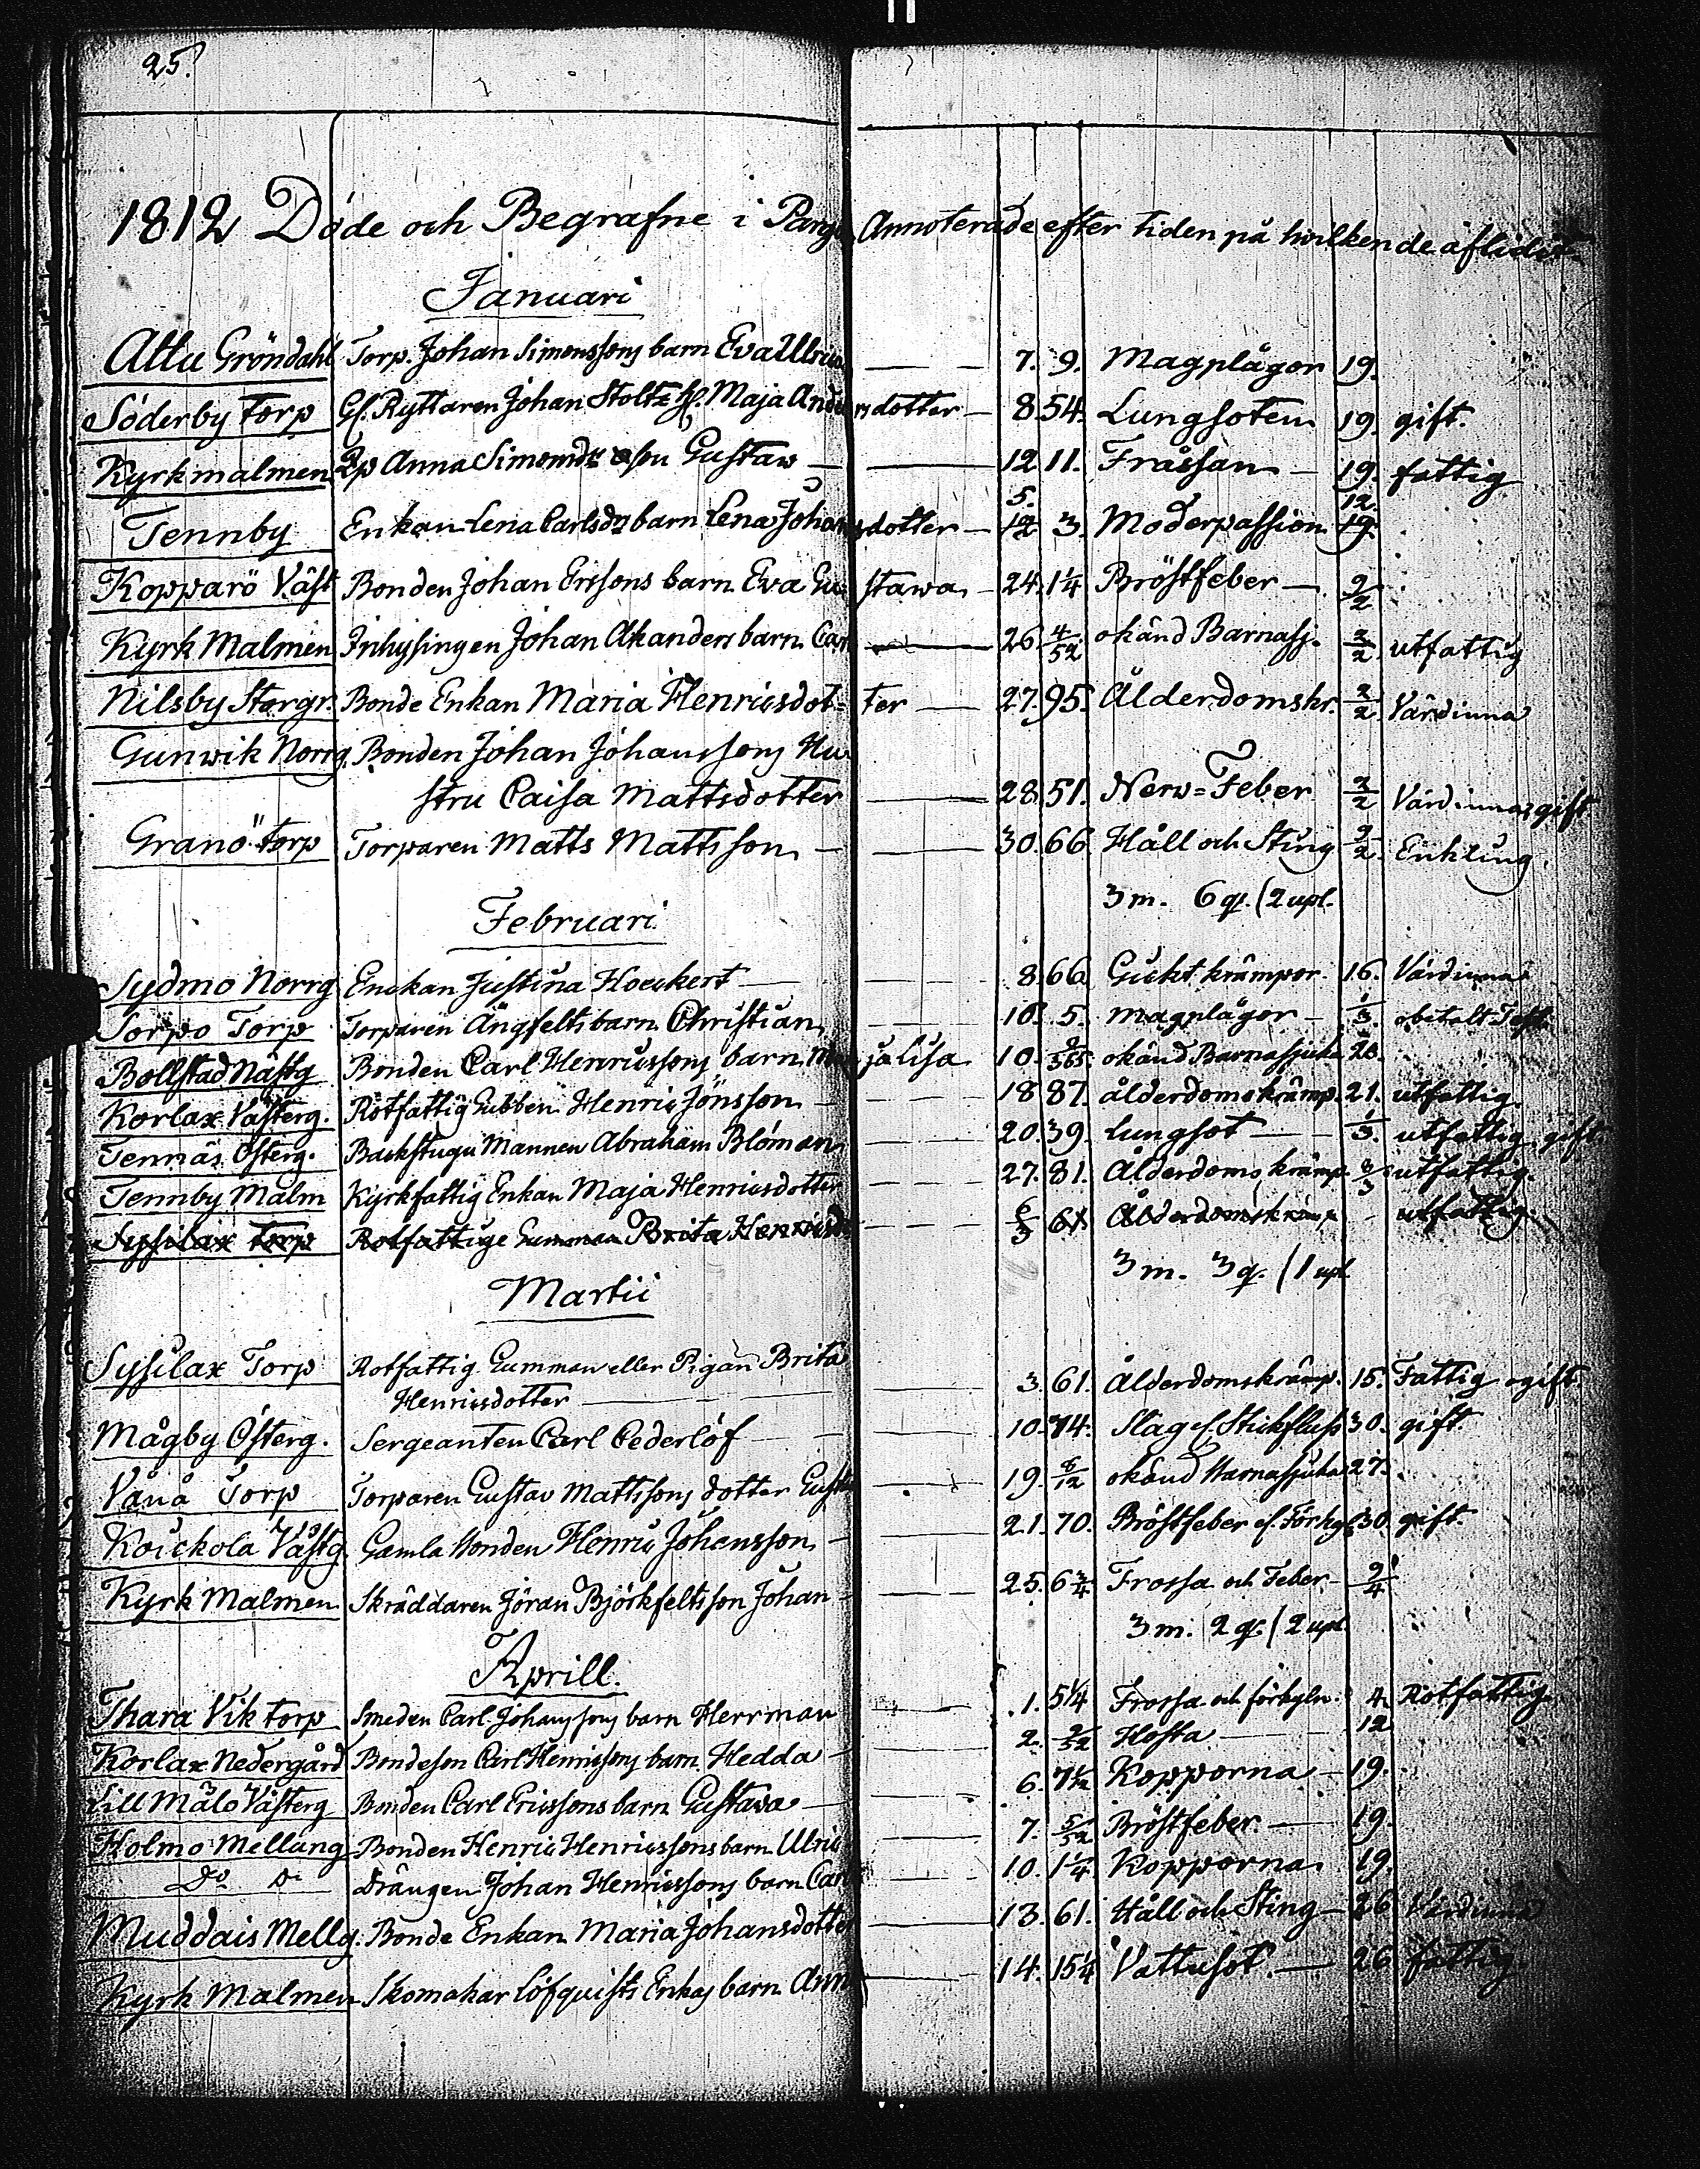 25.
1812 Döde och Begrafne i Parg Annoterade efter tiden på hvilken de aflidit.
Januari
Attu Gröndahl Torp. Johan Simonssons barn Eva Ulrica — — 7. 9. Magplågor 19.
Söderby Torp Gf. Ryttaren Johan Stoltz H. Maja Andersdotter — 8. 54. Lungsoten 19. gift.
Kyrkmalmen Pp Anna Simonsdr oson Gustaw — — 12. 11. Fråssan — 19. fattig
5. 12.
Tennby Enkan Lena Carlsdr barn Lena Johansdotter — 12 3. Moderpassion 19.
Kopparö Väst Bonden Johan Erssons barn Eva Gustawa — 24. 1 1/4 Bröstfeber — 2/2
Kyrk Malmen Inhysingen Johan Akanders barn Carl — 26. 4/52 okänd Barnasj. 2/2 utfattig
Nilsby Storgr. Bonde Enkan Maria Henricsdot=ter — 27. 95. Ålderdomskr. 2/2 Värdinna
Gunwik Norrg. Bonden Johan Johanssons Hu
stru Caisa Mattsdotter — 28. 51. Nerv=Feber 2/2 Värdinna, gift
Granö Torp Torparen Matts Mattsson — — 30. 66. Håll och Sting 2/2. Enkling.
3 m. 6 q. (2 upl.
Februari
Sydmo Norrg Enckan Justina Hoeckert — — 8. 66 Gickt krämpor 16. Värdinna
Sorpo Torp Torparen Ängfelts barn Christian — — 10. 5. magplågor — 1/3. obetalt Test.
Bollstad Nästg Bonden Carl Henricssons barn Maja Lisa 10. 9/365 okänd Barnasjuka 20.
Korlax Västerg. Rotfattig Gubben Henric Jönsson — — 18 87. ålderdomskrämp. 21. utfattig.
Tennäs Österg. Backstugu Mannen Abraham Bloman — — 20. 39. Lungsot — 1/3. utfattig, gift
Tennby Malm Kyrkfattig Enkan Maja Henricsdotter — — 27. 81. Ålderdoms krämp. 8/3 utfattig.
Sysilax Torp Rotfattige Gumman Brita Henricsd — — 61. Ålderdomskrämp — utfattig.
3 m. 3 q. (1 upl.
Martii
Sysilax Torp Rotfattig Gumman eller Pigan Brita
Henricsdotter — — 3. 61. Ålderdomskrämp. 15. Fattig ogift.
Mågby Österg. Sergeanten Carl Cederlöf — — 10. 74. Slag ef. Stickfluss 30. gift.
Vånå Torp Torparen Gustav Mattssons dotter Gusta — 19. 8/12 okänd Barnasjuka 27.
Koickola Västg. Gamla Bonden Henric Johansson — — 21. 70. Bröstfeber ef. Förkyl. 30. gift.
Kyrk Malmen Skräddaren Jöran Björkfelts son Johan — 25. 6 3/4 Frossa och Feber — 9/4
3 m. 2 q. (2 upl.
Aprill.
Thara Vik Torp Smeden Carl Johanssons barn Herrman — 1. 5 1/4 Frossa och förkyln. 4. Rotfattig
Korlax Nedergård Bondeson Carl Henricssons barn Hedda — 2. Hosta — 12
Lill Målö Västerg Bonden Carl Ericssons barn Gustava — 6. 7 1/2 Kopporna — 19.
Holmo Mellang Bonden Henric Henricssons barn Ulric — 7. 5/52 Bröstfeber — 19.
Do Do Drängen Johan Henricssons barn Carl — 10. 1 1/4 Kopporna 19.
Muddais Mellg. Bonde Enkan Maria Johansdotter — 13. 61. Håll och Sting — 26 Värdinna
Kyrk Malmen Skomakar Löfquists Enkas barn Ann — 14. 15 1/4 Vattusot. — 26 fattig.